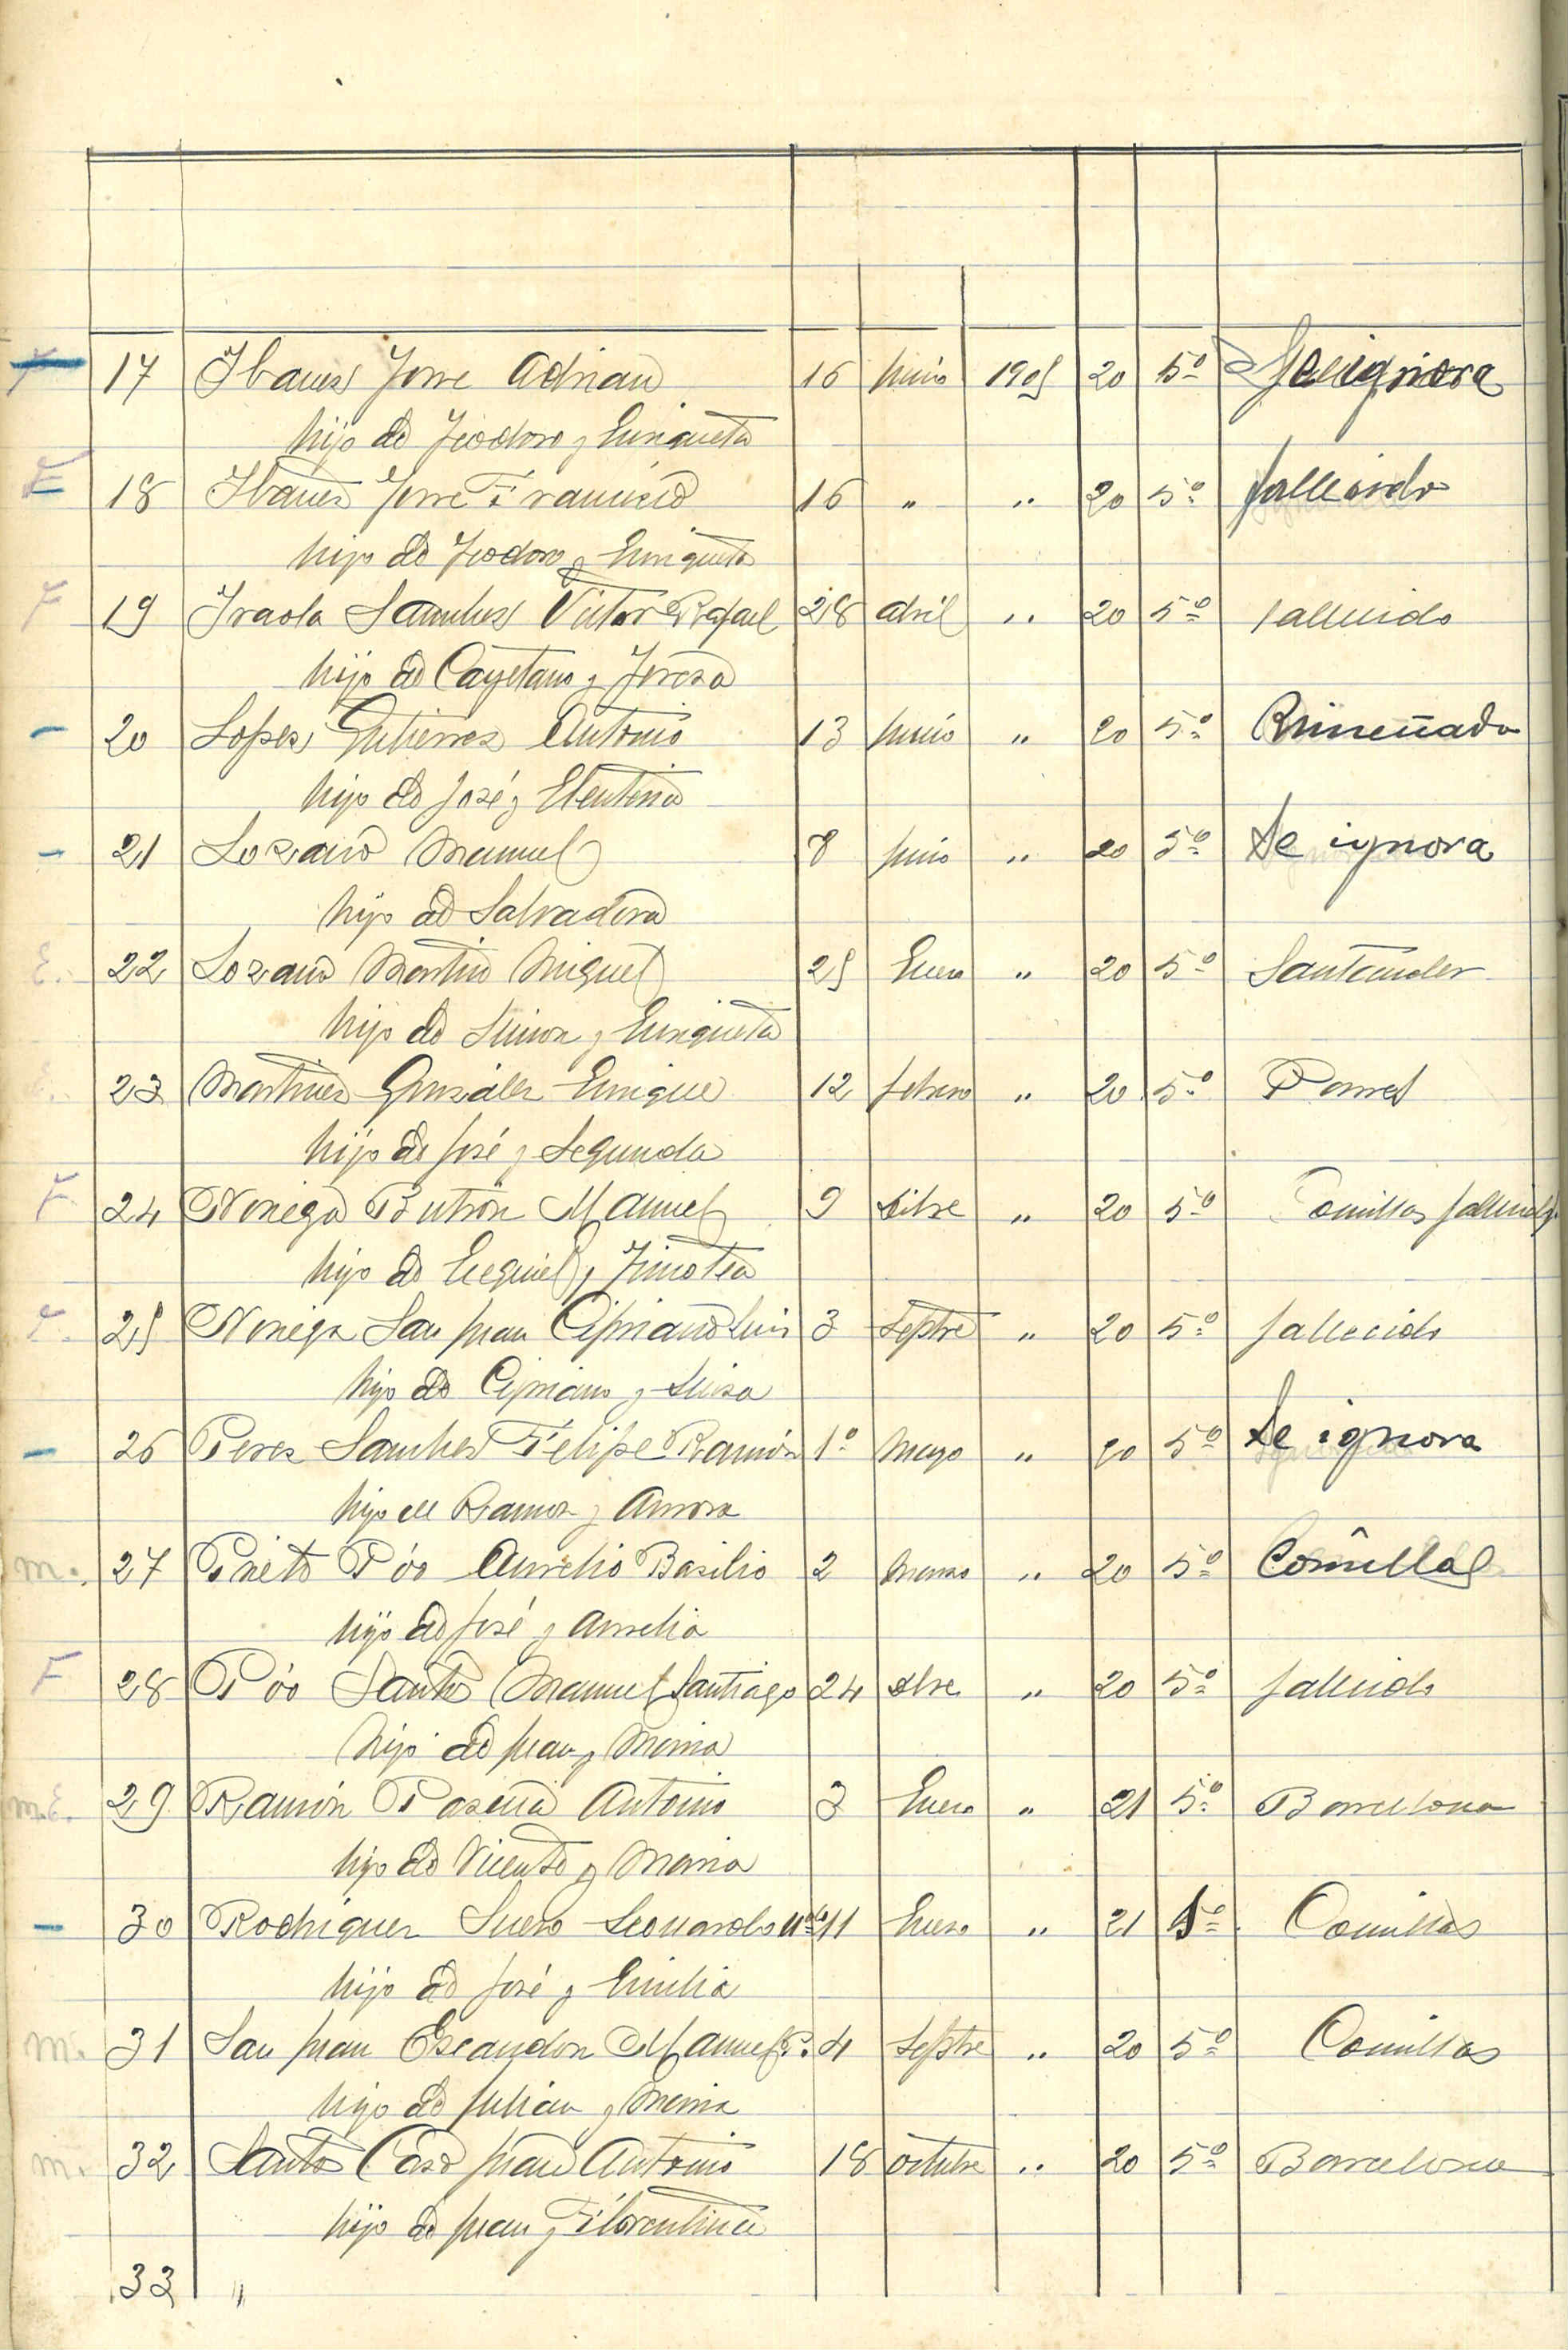 17 Ibanes Torre Adrian 16 Junio 1905 20 5º Se ignora
hijo de Teodoro y Enriqueta
E 18 Ibanes Torre Francisco 16 " " 20 5º fallecido
hijo de Teodoro y Enriqueta
F 19 Iraola Sanches Victor Rafael 28 abril " 20 5º fallecido
hijo de Cayetano y Teresa
- 20 Lopes Gutierres Antonio 13 Junio " 20 5º
hijo de José y Eleuteria
- 21 Lozano Manuel 8 Junio " 20 5º Se ignora
hijo de Salvadora
E. 22 Lozano Martin Miguel 25 Enero " 20 5º Santander
hijo de Simon y Enriqueta
E. 23 Martines Gonzáles Enrique 12 febrero " 20 5º
hijo de José y Segunda
F 24 Noriega Butrón Manuel 9 " 20 5º Comillas fallecido
hijo de Ezequiel y Timotea
25 Noriega San Juan Cipriano Luis 3 Septbre " 20 5º fallecido
hijo de Cipriano y Luisa
- 26 Peres Sanches Felipe Ramón 1º Mayo " 20 5º Se ignora
hijo de Ramon y Aurora
m. 27 Prieto Póo Aurelio Basilio 2 Marzo " 20 5º Comillas
hijo de José y Aurelia
F 28 Póo Santos Manuel Santiago 24 " 20 5º fallecido
hijo de Juan y Maria
m.E. 29 Ramón Antonio 3 Enero " 21 5º Barcelona
hijo de Vicente y Maria
- 30 Rodrigues Suero Leonardo 11 Enero " 21 5º Comillas
hijo de José y Emilia
m. 31 San Juan Escandon Manuel P. 4 Septbre " 20 5º Comillas
hijo de Julian y Maria
m. 32 Santos Caso Juan Antonio 18 octubre " 20 5º Barcelona
hijo de Juan y Florentina
33 "